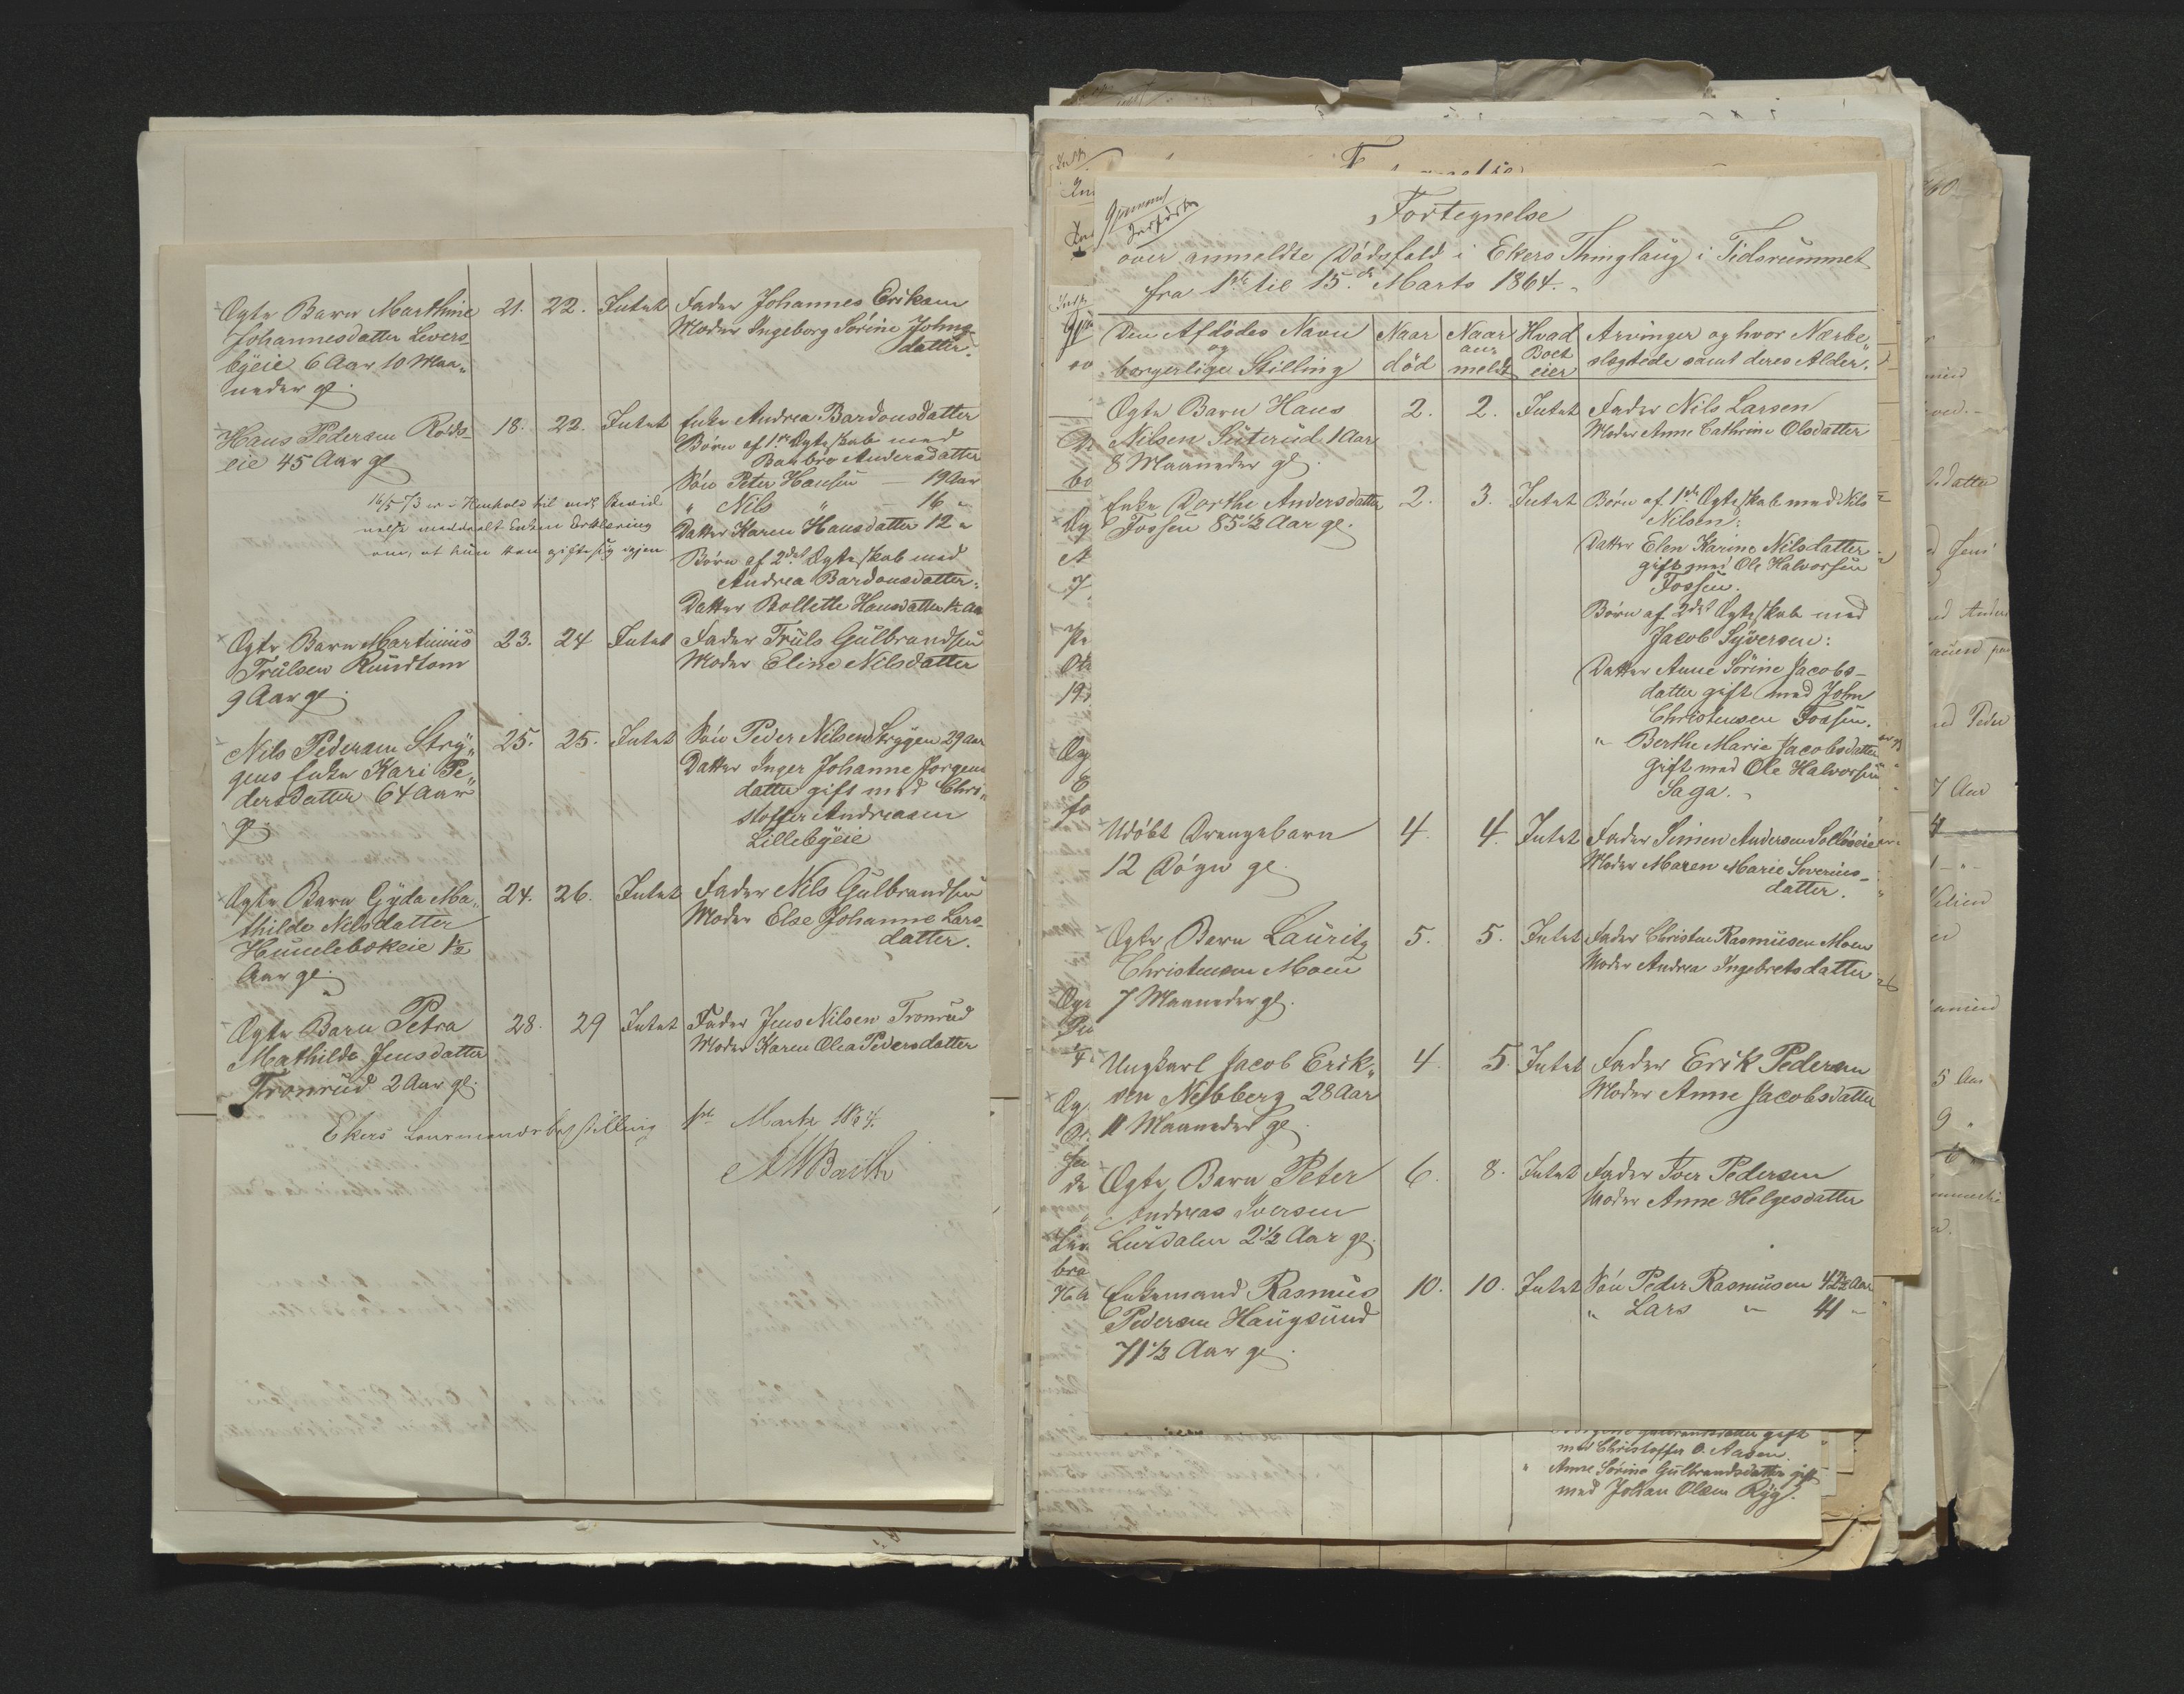 Ægte Barn Marthine 21. 22. Intet Fader Johannes Eriksen
Johannesdatter Levers- Moder Ingeborg Sørine Johns-
byeie 6 Aar 10 Maa„ datter.
neder gl.
Hans Pedersen Røds- 18. 22. Intet Enke Andrea Bardonsdatter
eie 45 Aar gl Børn af 1ste Ægteskab med
Barbro Andersdatter
Søn Peter Hansen — 19 Aar
16/5 73 er i Henhold til
„ Nils „ — 16 „
meddelt Enken Erklæring
Datter Karen Hansdatter 12 „
om, at hun kan gifte sig igjen
Børn af 2det Ægteskab med
Andrea Bardonsdatter:
Datter Bollette Hansdatter ½ Aar
Ægte Barn Martinius 23. 24 Intet Fader Truls Gulbrandsen
Trulsen Rundtom Moder Eline Nilsdatter
9 Aar gl.
Nils Pedersen Stry„ 25. 25. Intet Søn Peder Nilsen Strygen 29 Aar
gens Enke Kari Pe„ Datter Inger Johanne Jørgens
dersdatter 64 Aar datter gift med Chri„
gl stoffer Andreasen
Lillebyeie
Ægte Barn Gyda Ma„ 24. 26. Intet Fader Nils Gulbrandsen
thilde Nilsdatter Moder Else Johanne Lars-
Humlebækeie 1½ datter.
Aar gl.
Ægte Barn Petra 28. 29 Intet Fader Jens Nilsen Tronrud
Mathilde Jensdatter Moder Karen Olea Pedersdatter
Tronrud 2 Aar gl.
Ekers Lensmandsbestilling 1ste Marts 1864.
Fortegnelse
over anmeldte Dødsfald i Ekers Thinglaug i Tidsrummet
fra 1ste til 15de Marts 1864.
Den Afdødes Navn Naar Naar Hvad Arvinger og hvor Nærbe„
og an Boet
borgerlige Stilling død meldt eier slægtede samt deres Alder.
Ægte Barn Hans 2. 2. Intet Fader Nils Larsen
Nilsen Suterud 1 Aar Moder Anne Cathrine Olsdatter
8 Maaneder gl.
Enke Dorthe Andersdatter 2. 3. Intet Børn af 1ste Ægteskab med Nils
Fossen 85½ Aar gl. Nilsen:
Datter Elen Karine Nilsdatter
gift med Ole Halvorsen
Fossen.
Børn af 2det Ægteskab med
Jacob Syversen:
Datter Anne Sørine Jacobs-
datter gift med John
Christensen Fossen.
„ Berthe Marie Jacobsdatter
gift med Ole Halvorsen
Saga.
Udøbt Drengebarn 4. 4. Intet Fader Simen Andersen
12 Døgn gl. Moder Maren Marie Severins-
datter.
Ægte Barn Lauritz 5. 5. Intet Fader Christen Rasmusen Moen
Christensen Moen Moder Andrea Ingebretsdatter
7 Maaneder gl.
Ungkarl Jacob Erik„ 4. 5. Intet Fader Erik Pedersen
sen Nebberg 28 Aar Moder Anne Jacobsdatter
11 Maaneder gl.
Ægte Barn Peter 6. 8. Intet Fader Iver Pedersen
Andreas Iversen Moder Anne Helgesdatter
Lurdalen 2½ Aar gl.
Enkemand Rasmus 10. 10. Intet Søn Peder Rasmusen 42½ Aar
Pedersen Haugsund „ Lars „ 41 „
71½ Aar gl.
med Christoffer O. Aasen.
„ Anne Sørine Gulbrandsdatter gift
med Johan Olsen Ryg.